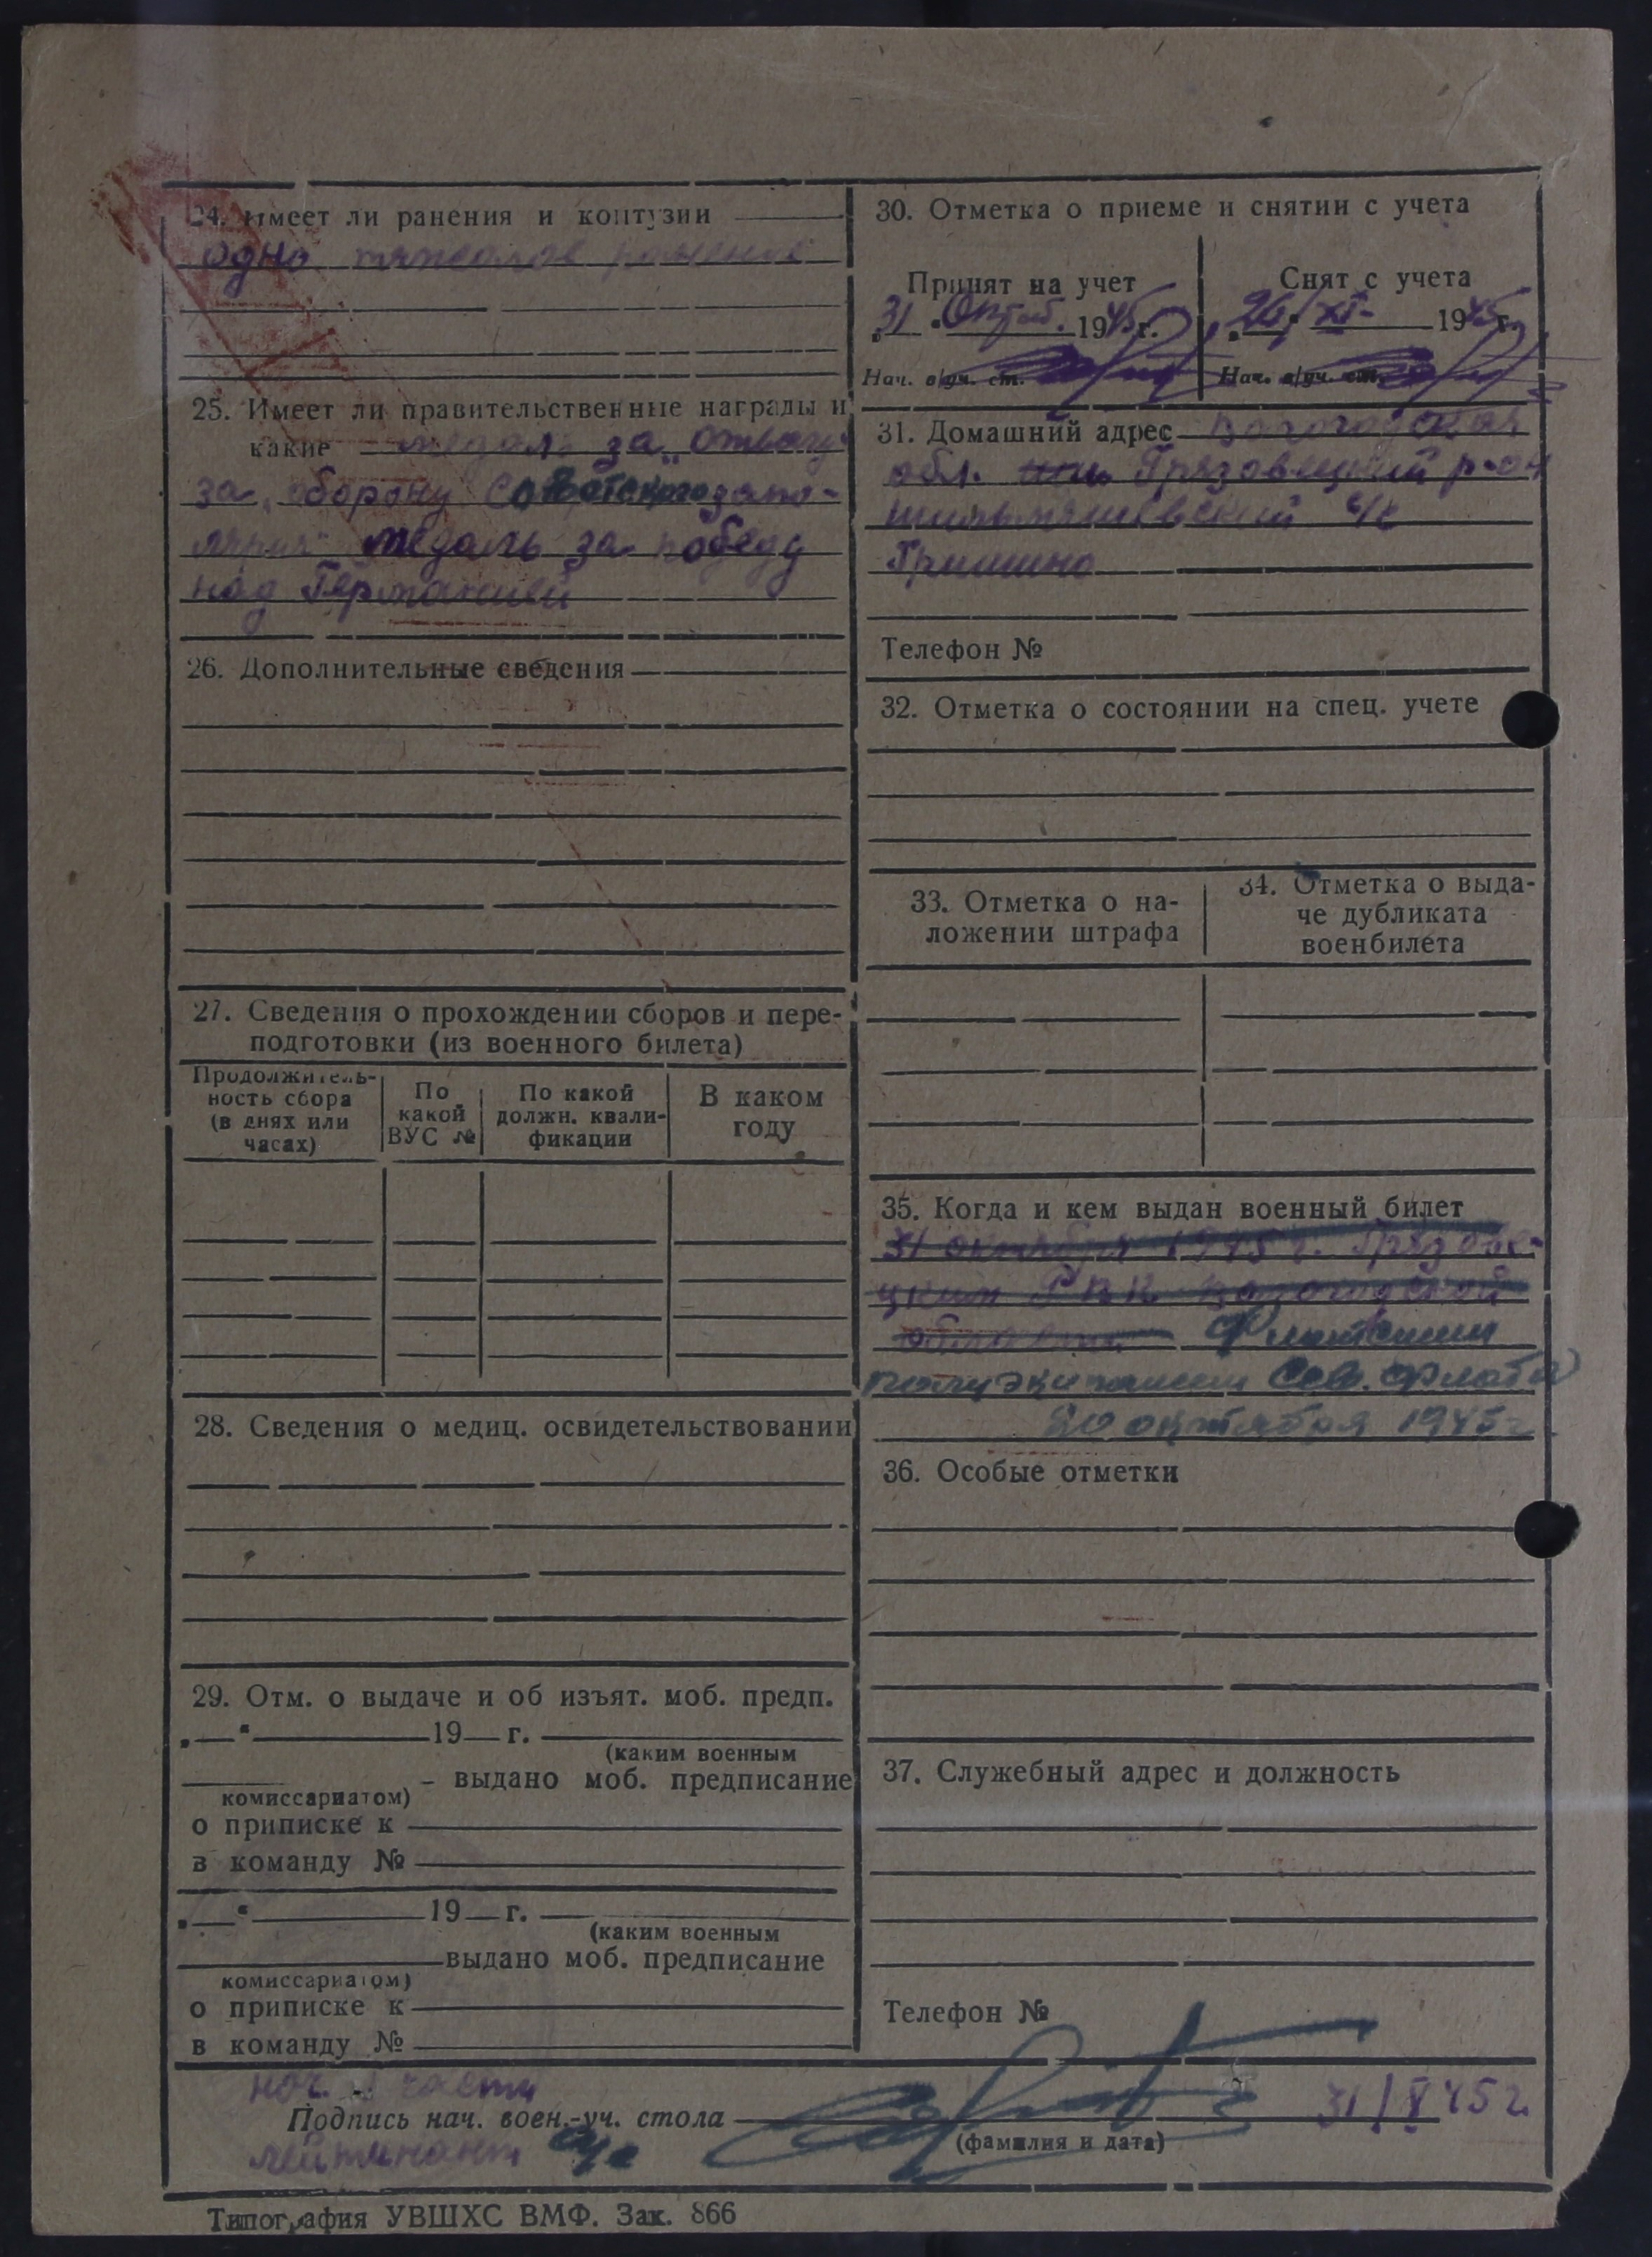 24. Имеет ли ранения и контузии
одно тяжолое ранение
25. Имеет ли правительственные награды и
какие медаль за „Отвагу"
за „оборону Советского запо-
лярия" медаль за победу
над Германией
26. Дополнительные сведения
27. Сведения о прохождении сборов и пере-
подготовки (из военного билета)
Продолжитель-
ность сбора
(в днях или
часах)
По
какой
ВУС №
По какой
должн. квали-
фикации
В каком
году
28. Сведения о медиц. освидетельствовании
29. Отм. о выдаче и об изъят. моб. предп.
„ “ 19 г.
(каким военным
комиссариатом)
- выдано моб. предписание
о приписке к
в команду №
„ “ 19 г.
(каким военным
комиссариатом)
выдано моб. предписание
о приписке к
в команду №
30. Отметка о приеме и снятии с учета
Принят на учет
31 “ Октяб. 1945 г.
Нач. в/уч. ст.
Снят с учета
26 “ XI 1945 г.
Нач. в/уч. ст.
31. Домашний адрес Вологодская
обл. Грязовецкий р-он
с/с
Гришино
Телефон №
32. Отметка о состоянии на спец. учете
33. Отметка о на-
ложении штрафа
34. Отметка о выда-
че дубликата
военбилета
35. Когда и кем выдан военный билет
31 октября 1945 г. Грязове-
цким РВК Вологодской
области Флотским
полуэкипажем Сев. флота
20 октября 1945 г.
36. Особые отметки
37. Служебный адрес и должность
Телефон №
нач. части
Подпись нач. воен.-уч. стола
31/X 45 г.
(фамилия и дата)
лейтенант
Типография УВШХС ВМФ. Зак. 866